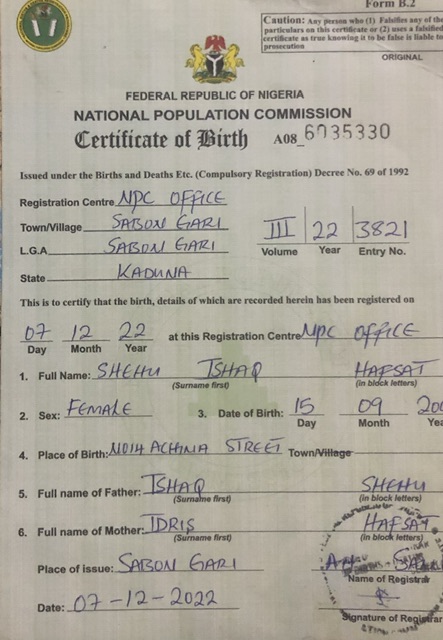 Form B.2
Caution: Any person who (1) Falsifies any of the
particulars on this certificate or (2) uses a falsified
certificate as true knowing it to be false is liable to
prosecution
ORIGINAL
FEDERAL REPUBLIC OF NIGERIA
NATIONAL POPULATION COMMISSION
Certificate of Birth A08_6935330
Issued under the Births and Deaths Etc. (Compulsory Registration) Decree No. 69 of 1992
Registration Centre NPC OFFICE
Town/Village SABON GARI III 22 3821
L.G.A SABON GARI Volume Year Entry No.
State KADUNA
This is to certify that the birth, details of which are recorded herein has been registered on
07 12 22 at this Registration Centre NPC OFFICE
Day Month Year
1. Full Name: SHEHU ISHAQ HAFSAT
(Surname first) (in block letters)
2. Sex: FEMALE 3. Date of Birth: 15 09 200
Day Month Yea
4. Place of Birth: NO14 STREET Town/Village
5. Full name of Father: ISHAQ SHEHU
(Surname first) (in block letters)
6. Full name of Mother: IDRIS HAFSAT
(Surname first) (in block letters)
Place of issue: SABON GARI
Name of Registrar
Date: 07-12-2022
Signature of Registrar